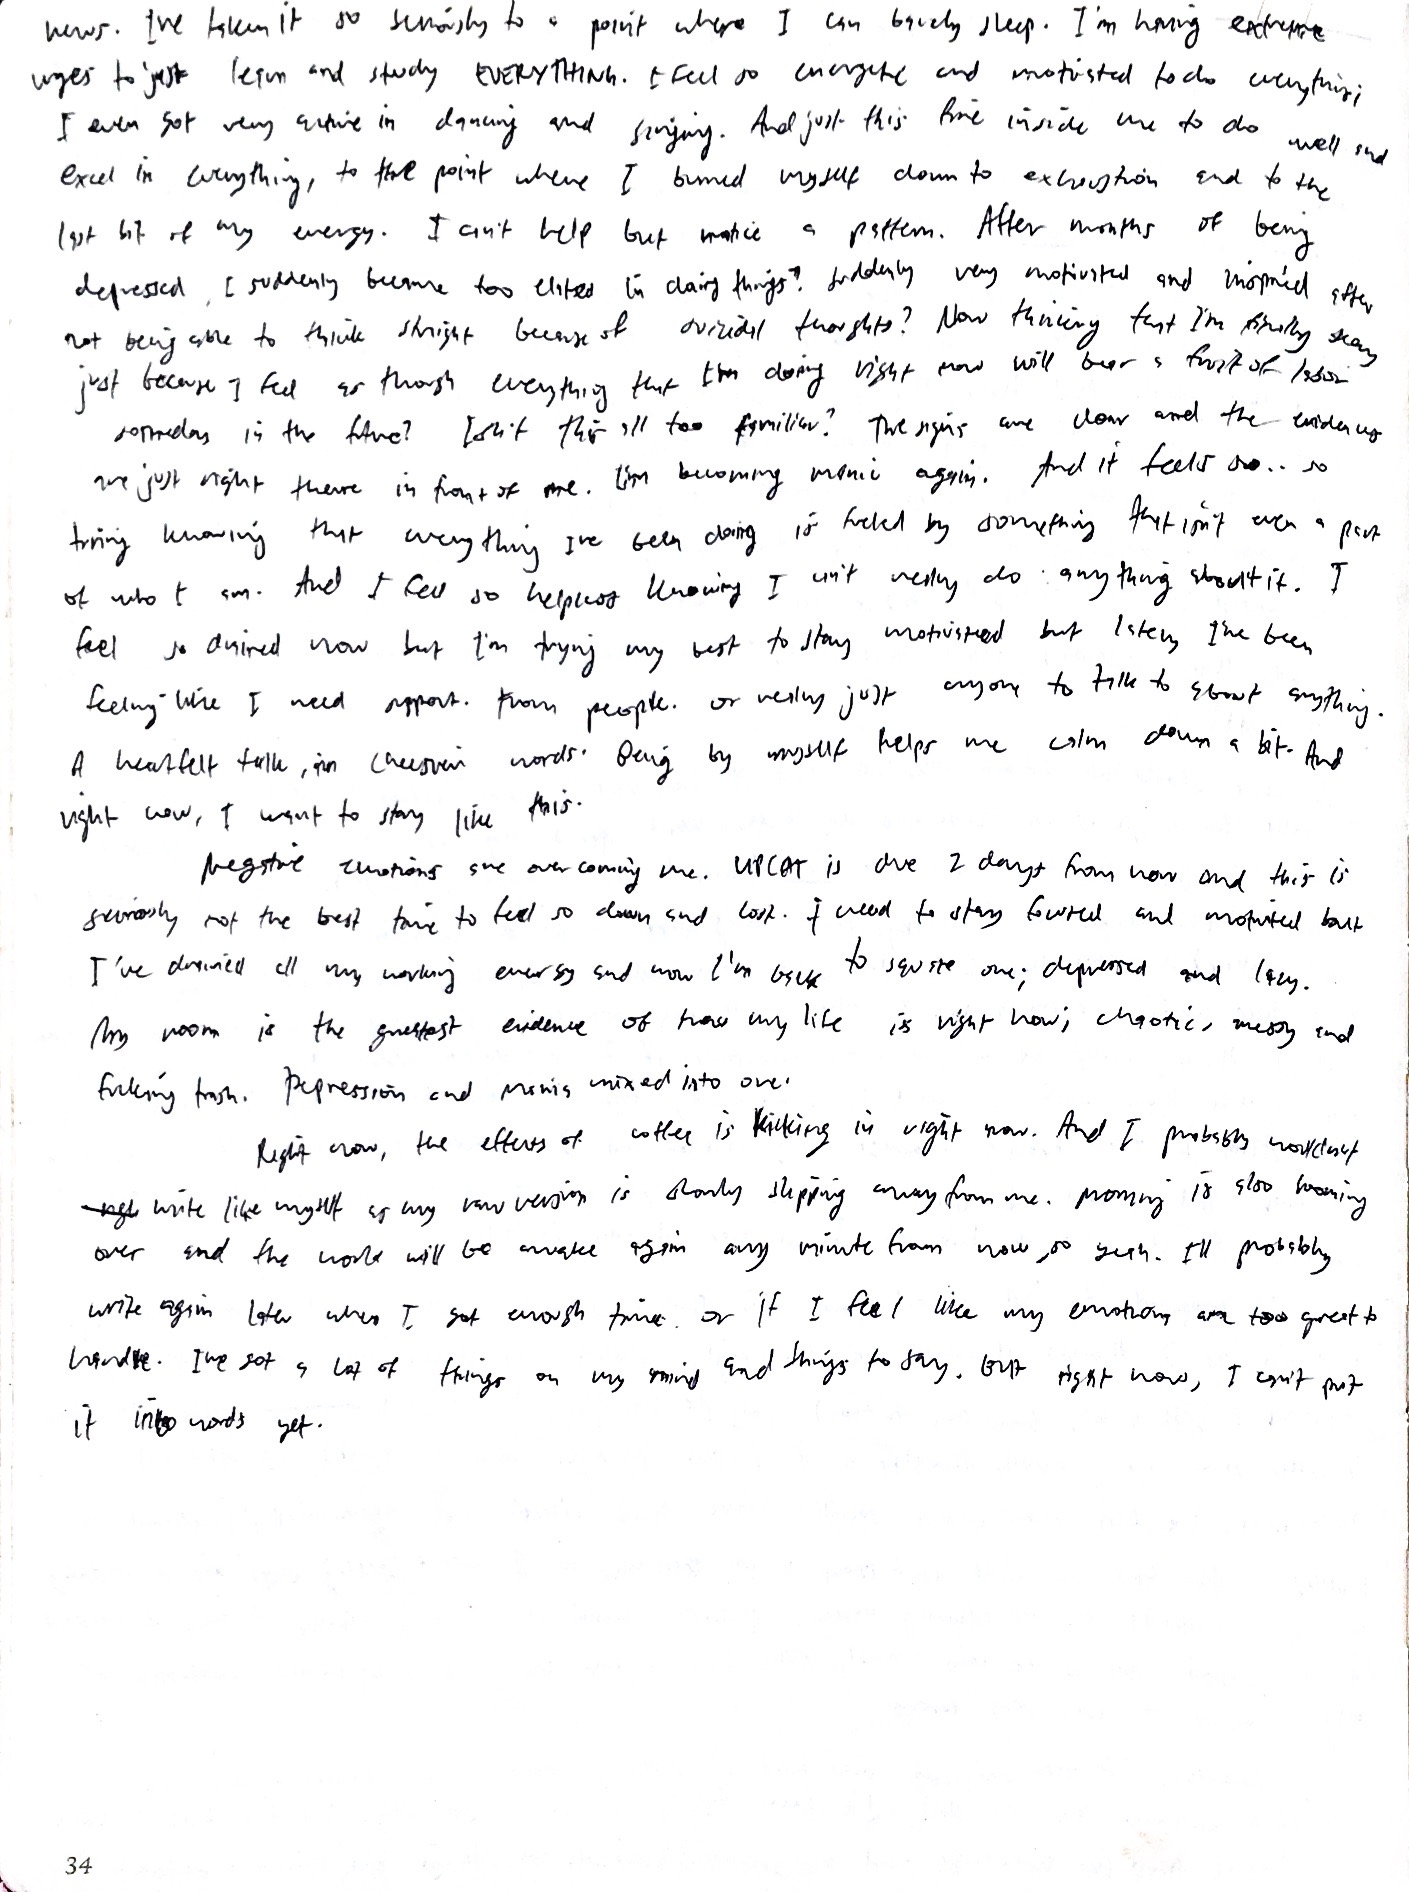 news. I've taken it so seriously to a point where I can barely sleep. I'm having extreme
urges to just learn and study EVERYTHING. I feel so energetic and motivated to do everything;
I even got very active in dancing and singing. And just this fire inside me to do well and
excel in everything, to the point where I burned myself down to exhaustion and to the
last bit of my energy. I can't help but notice a pattern. After months of being
depressed, I suddenly became too elated in doing things? Suddenly very motivated and inspired after
not being able to think straight because of suicidal thoughts? Now thinking that I'm finally okay
just because I feel as though everything that I'm doing right now will bear a fruit of labor
someday in the future? Isn't this all too familiar? The signs are clear and the evidences
are just right there in front of me. I'm becoming manic again. And it feels so.. so
tiring knowing that everything I've been doing is fueled by something that isn't even a part
of who I am. And I feel so helpless knowing I can't really do anything about it. I
feel so drained now but I'm trying my best to stay motivated but lately I've been
feeling like I need support. From people. or really just anyone to talk to about anything.
A heartfelt talk, in words. Being by myself helps me calm down a bit. And
right now, I want to stay like this.
Negative emotions are overcoming me. UPCAT is due 2 days from now and this is
seriously not the best time to feel so down and lost. I need to stay focused and motivated but
I've drained all my working energy and now I'm back to square one; depressed and lazy.
My room is the greatest evidence of how my life is right now; chaotic, messy and
fucking trash. Depression and Mania mixed into one.
Right now, the effects of coffee is kicking in right now. And I probably wouldn't
write like myself as my raw version is slowly slipping away from me. Morning is also looming
over and the world will be awake again any minute from now, so yeah. I'll probably
write again later when I got enough time. or if I feel like my emotions are too great to
handle. I've got a lot of things on my mind and things to say. But right now, I can't put
it into words yet.
34